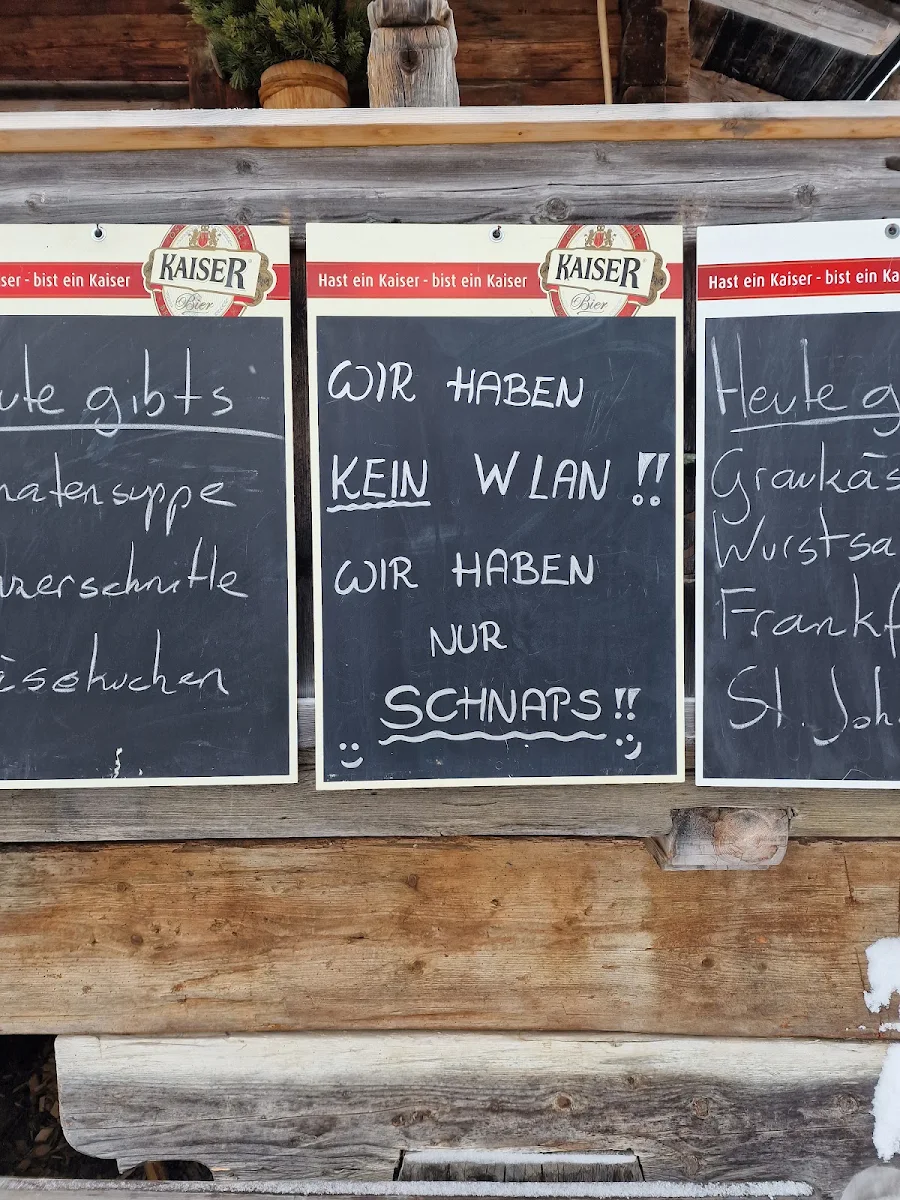 ser - bist ein Kaiser
KAISER
Bier
ute gibts
natensuppe
nzerschnitte
äsekuchen
Hast ein Kaiser - bist ein Kaiser
KAISER
Bier
WIR HABEN
KEIN WLAN !!
WIR HABEN
NUR
SCHNAPS !!
Hast ein Kaiser - bist ein Ka
Heute g
Graukäs
Wurstsa
Frankf
St. Joh